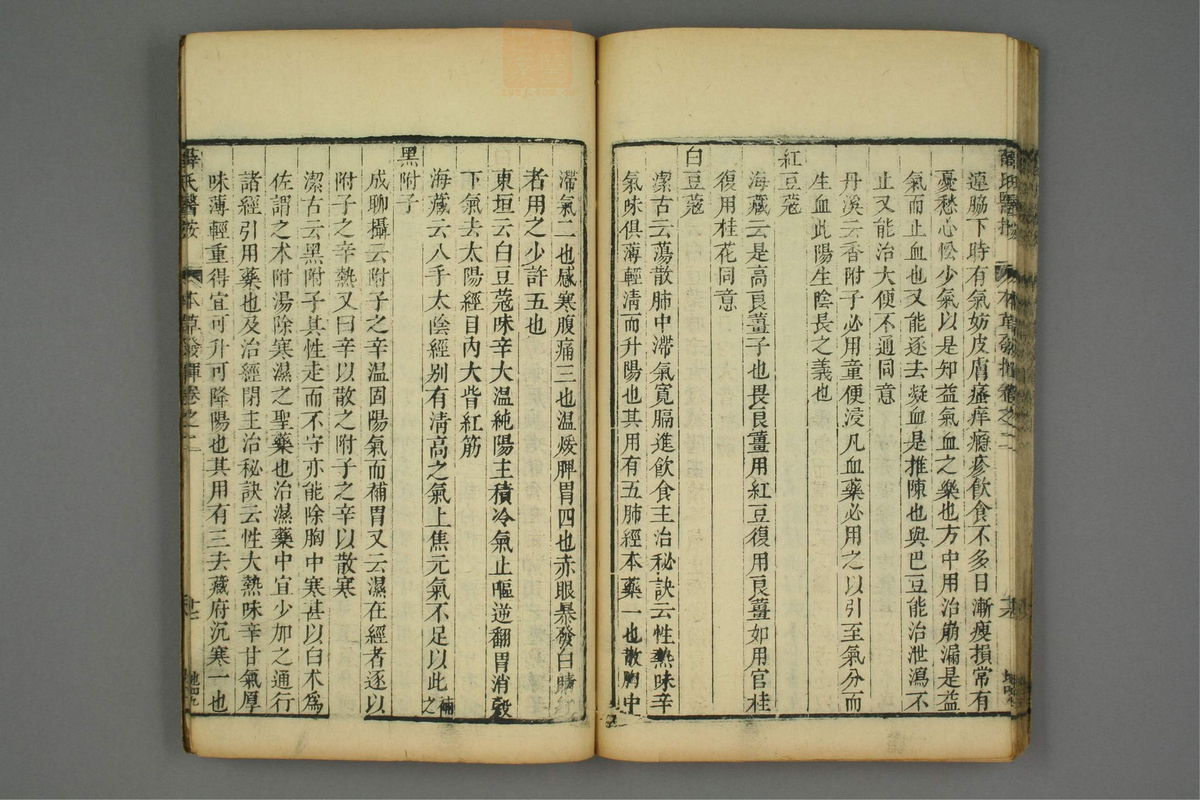 薛氏醫按 本草發揮卷之二
遶脇下時有氣妨皮膚瘙痒癮疹飲食不多日漸瘦損常有
憂愁心忪少氣以是知益氣血之藥也方中用治崩漏是益
氣而止血也又能逐去凝血是推陳也與巴豆能治泄瀉不
止又能治大便不通同意
丹溪云香附子必用童便浸凡血藥必用之以引至氣分而
生血此陽生陰長之義也
紅豆蔻
海藏云是高良薑子也畏良薑用紅豆復用良薑如用官桂
復用桂花同意
白豆蔻
潔古云蕩散肺中滯氣寬膈進飲食主治秘訣云性熱味辛
氣味俱薄輕清而升陽也其用有五肺經本藥一也散胸中
滯氣二也感寒腹痛三也温煖脾胃四也赤眼暴發白睛紅
者用之少許五也
東垣云白豆蔻味辛大温純陽主積冷氣止嘔逆翻胃消穀
下氣去太陽經目內大眥紅筋
海藏云入手太陰經别有清高之氣上焦元氣不足以此補之
黑附子
成聊攝云附子之辛温固陽氣而補胃又云濕在經者逐以
附子之辛熱又曰辛以散之附子之辛以散寒
潔古云黑附子其性走而不守亦能除胸中寒甚以白术爲
佐謂之术附湯除寒濕之聖藥也治濕藥中宜少加之通行
諸經引用藥也及治經閉主治秘訣云性大熱味辛甘氣厚
味薄輕重得宜可升可降陽也其用有三去藏府沉寒一也
薛氏醫按 本草發揮卷之二